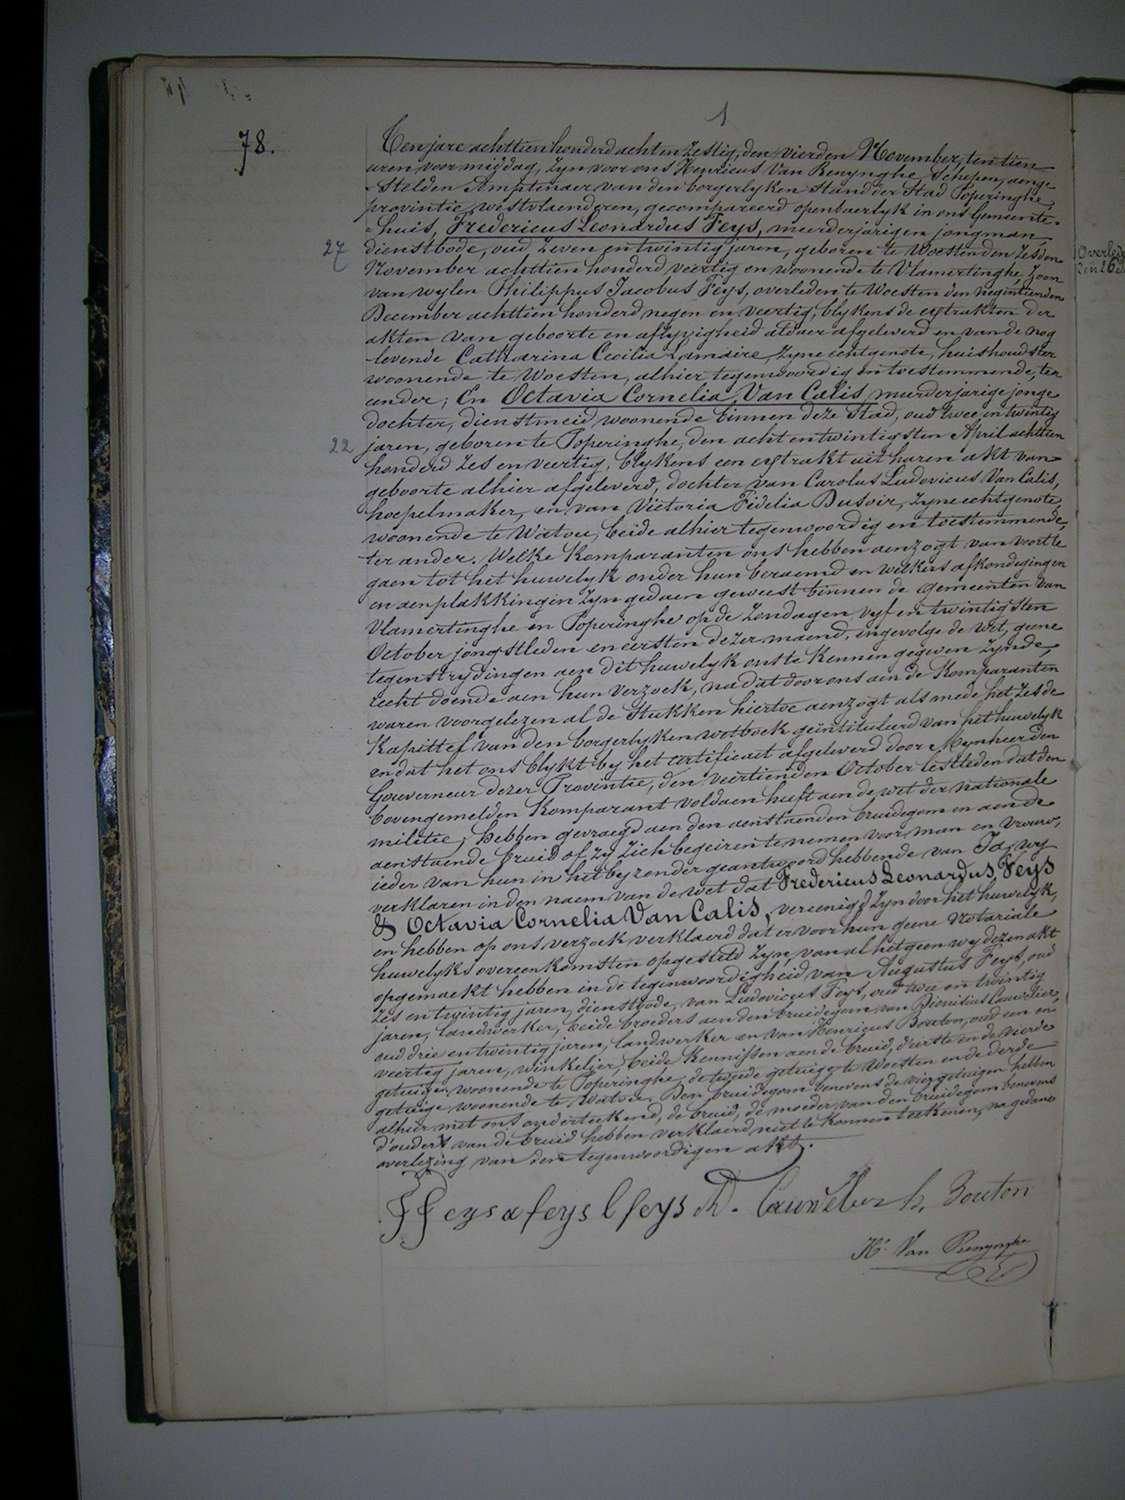 1
78.
Ten jare achttien honderd achtenzestig, den vierden November, ten tien
uren voormiddag, zyn voor ons Henricus Van Renynghe, Schepen, aenge-
-stelden Amptenaer van den borgerlyken stand der Stad Poperinghe,
provintie westvlaenderen, gecompareerd openbaerlyk in ons Gemeente-
-huis, Fredericus Leonardus Feys, meerderjarigen jongman
27
dienstbode, oud zeven en twintig jaren, geboren te Woesten den zesden
November achttien honderd veertig en woonende te Vlamertinghe, zoon
van wylen Philippus Jacobus Feys, overleden te Woesten den negentienden
December achttien honderd negen en veertig, blykens de extrakten der
akten van geboorte en aflyvigheid aldaer afgeleverd en van de nog
levende Catharina Cecilia Lamaire, zyne echtgenote, huishoudster
woonende te Woesten, alhier tegenwoordig en toestemmende, ten
eender; En Octavia Cornelia Van Calis meerderjarige jonge
dochter, dienstmeid woonende binnen deze Stad, oud twee en twintig
22
jaren, geboren te Poperinghe, den acht en twintigsten April achttien
honderd zes en veertig, blykens een extrakt uit haren akt van
geboorte alhier afgeleverd, dochter van Carolus Ludovicus Van Calis,
hoepelmaker, en van Victoria Fidelia Dusoir, zyne echtgenote,
woonende te Watou, beide alhier tegenwoordig en toestemmende,
ter ander. Welke komparanten ons hebben aenzogt van voort te
gaen tot het huwelyk onder hun beraemd en welkers afkondegingen
en aenplakkingen zyn gedaen geweest binnen de gemeenten van
Vlamertinghe en Poperinghe op de zondagen vyf en twintigsten
October jongstleden en eersten dezer maend, ingevolge de wet, geene
tegenstrydingen aen dit huwelyk ons te kennen gegeven zynde,
recht doende aen hun verzoek, nadat door ons aen de komparanten
waren voorgelezen al de stukken hiertoe aenzogt als mede het zesde
kapittel van den borgerlyken wetboek geïntituleerd van het huwelyk
en dat het ons blykt by het certificaat afgeleverd door Mynheer den
Gouverneur dezer Provintie, den veertienden October lestleden dat den
bovengemelden komparant voldaen heeft aen de wet der nationale
militie; hebben gevraegd aen den aenstaenden bruidegom en aen de
aenstaende bruid of zy zich begeiren te nemen voor man en vrouw,
ieder van hun in het byzonder geantwoord hebbende van Ja, wy
verklaren in den naem van de wet dat Fredericus Leonardus Feys
& Octavia Cornelia Van Calis, vereenigd zyn door het huwelyk,
en hebben op ons verzoek verklaerd dat er voor hun geene Notariale
huwelyks overeenkomsten opgesteld zyn, van al het geen wy dezen akt
opgemaekt hebben in de tegenwoordigheid van Augustus Feys, oud
zes en twintig jaren, dienstbode, van Ludovicus Feys, oud twee en twintig
jaren, landwerker, beide broeders aen den bruidegom van Dionisius Cauwelier,
oud drie en twintig jaren, landwerker en van Henricus Bouton, oud een en
veertig jaren, winkelier, beide kennissen aen de bruid, d'eerste en de vierde
getuigen woonende te Poperinghe, de tweede getuige te Woesten en de derde
getuige woonende te Watou. Den bruidegom benevens de vier getuigen hebben
alhier met ons onderteekend, de bruid, de moeder van den bruidegom benevens
d'ouders van de bruid hebben verklaerd niet te konnen teekenen, na gedane
overlezing van den tegenwoordigen akt.
F Feys a feys l feys D. Cauwelier h, Bouton
Hi Van Renynghe